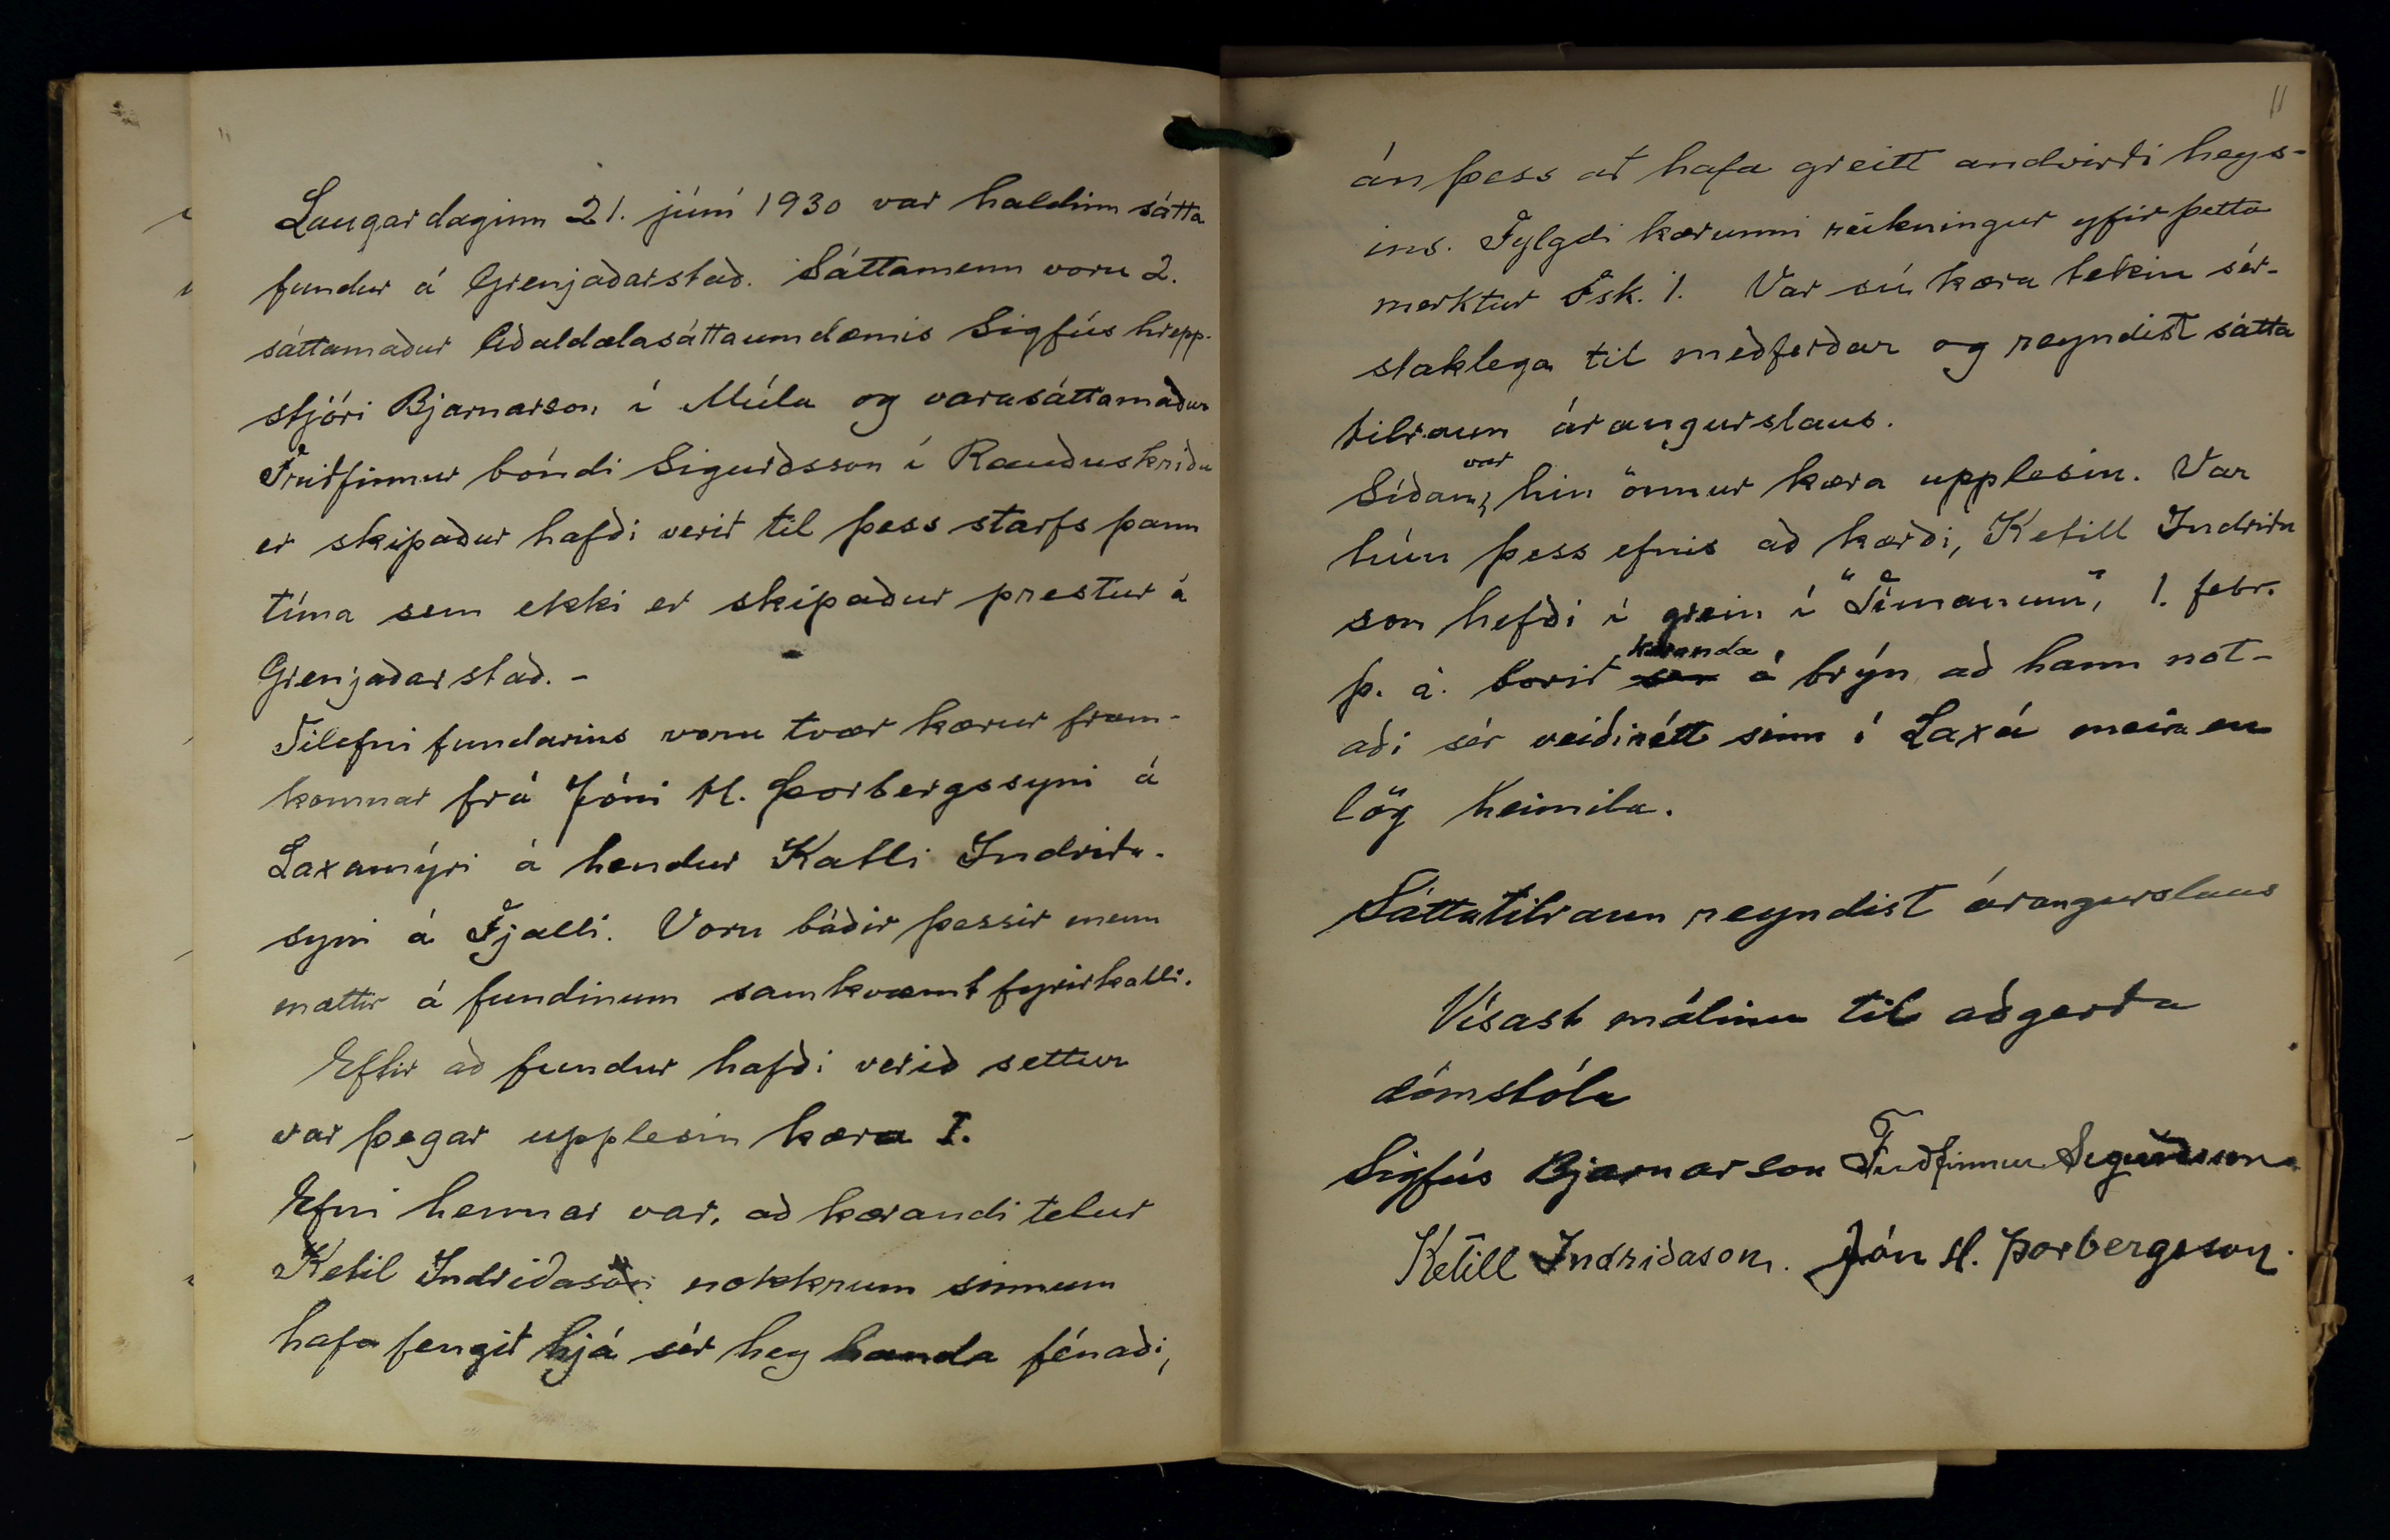 Laugardaginn 21. júní 1930 var haldinn sátta
fundur á Grenjaðarstað. Sáttamenn voru 2.
sáttamaður Aðaldælasáttaumdæmis Sigfús hrepp-
stjóri Bjarnarson í Múla og varasáttamaður
Friðfinnur bóndi Sigurðsson í Rauðuskriðu
er skipaður hafði verið til þess starfs þann
tíma sem ekki er skipaður prestur á
Grenjaðarstað. -
Tilefni fundarins voru tvær kærur fram-
komnar frá Jóni H. Þorbergssyni á
Laxamýri á hendur Katli Indriða-
syni á Fjalli. Voru báðir þessir menn
mættir á fundinum samkvæmt fyrirkalli.
Eftir að fundur hafði verið settur
var þegar upplesin kæra I.
Efni hennar var, að kærandi telur
Ketil Indriðason nokkrum sinnum
hafa fengið hjá sér hey handa fénaði,
11
án þess að hafa greitt andvirði heys-
ins. Fylgdi kærunni reikningur yfir þetta
merktur Fsk. 1. Var sú kæra tekin sér-
staklega til meðferðar og reyndist sátta
tilraun árangurslaus.
Síðan var hin önnur kæra upplesin. Var
hún þess efnis að kærði, Ketill Indriða
son hefði í grein í "Tímanum", 1. febr.
þ. á. borið kæranda á brýn að hann not-
aði sér veiðirétt sinn í Laxá meira en
lög heimila.
Sáttatilraun reyndist árangurslaus
Vísast málinu til aðgerða
dómstóla
Sigfús Bjarnarson Friðfinnur Sigurðsson
Ketill Indriðason. Jón H. Þorbergsson.